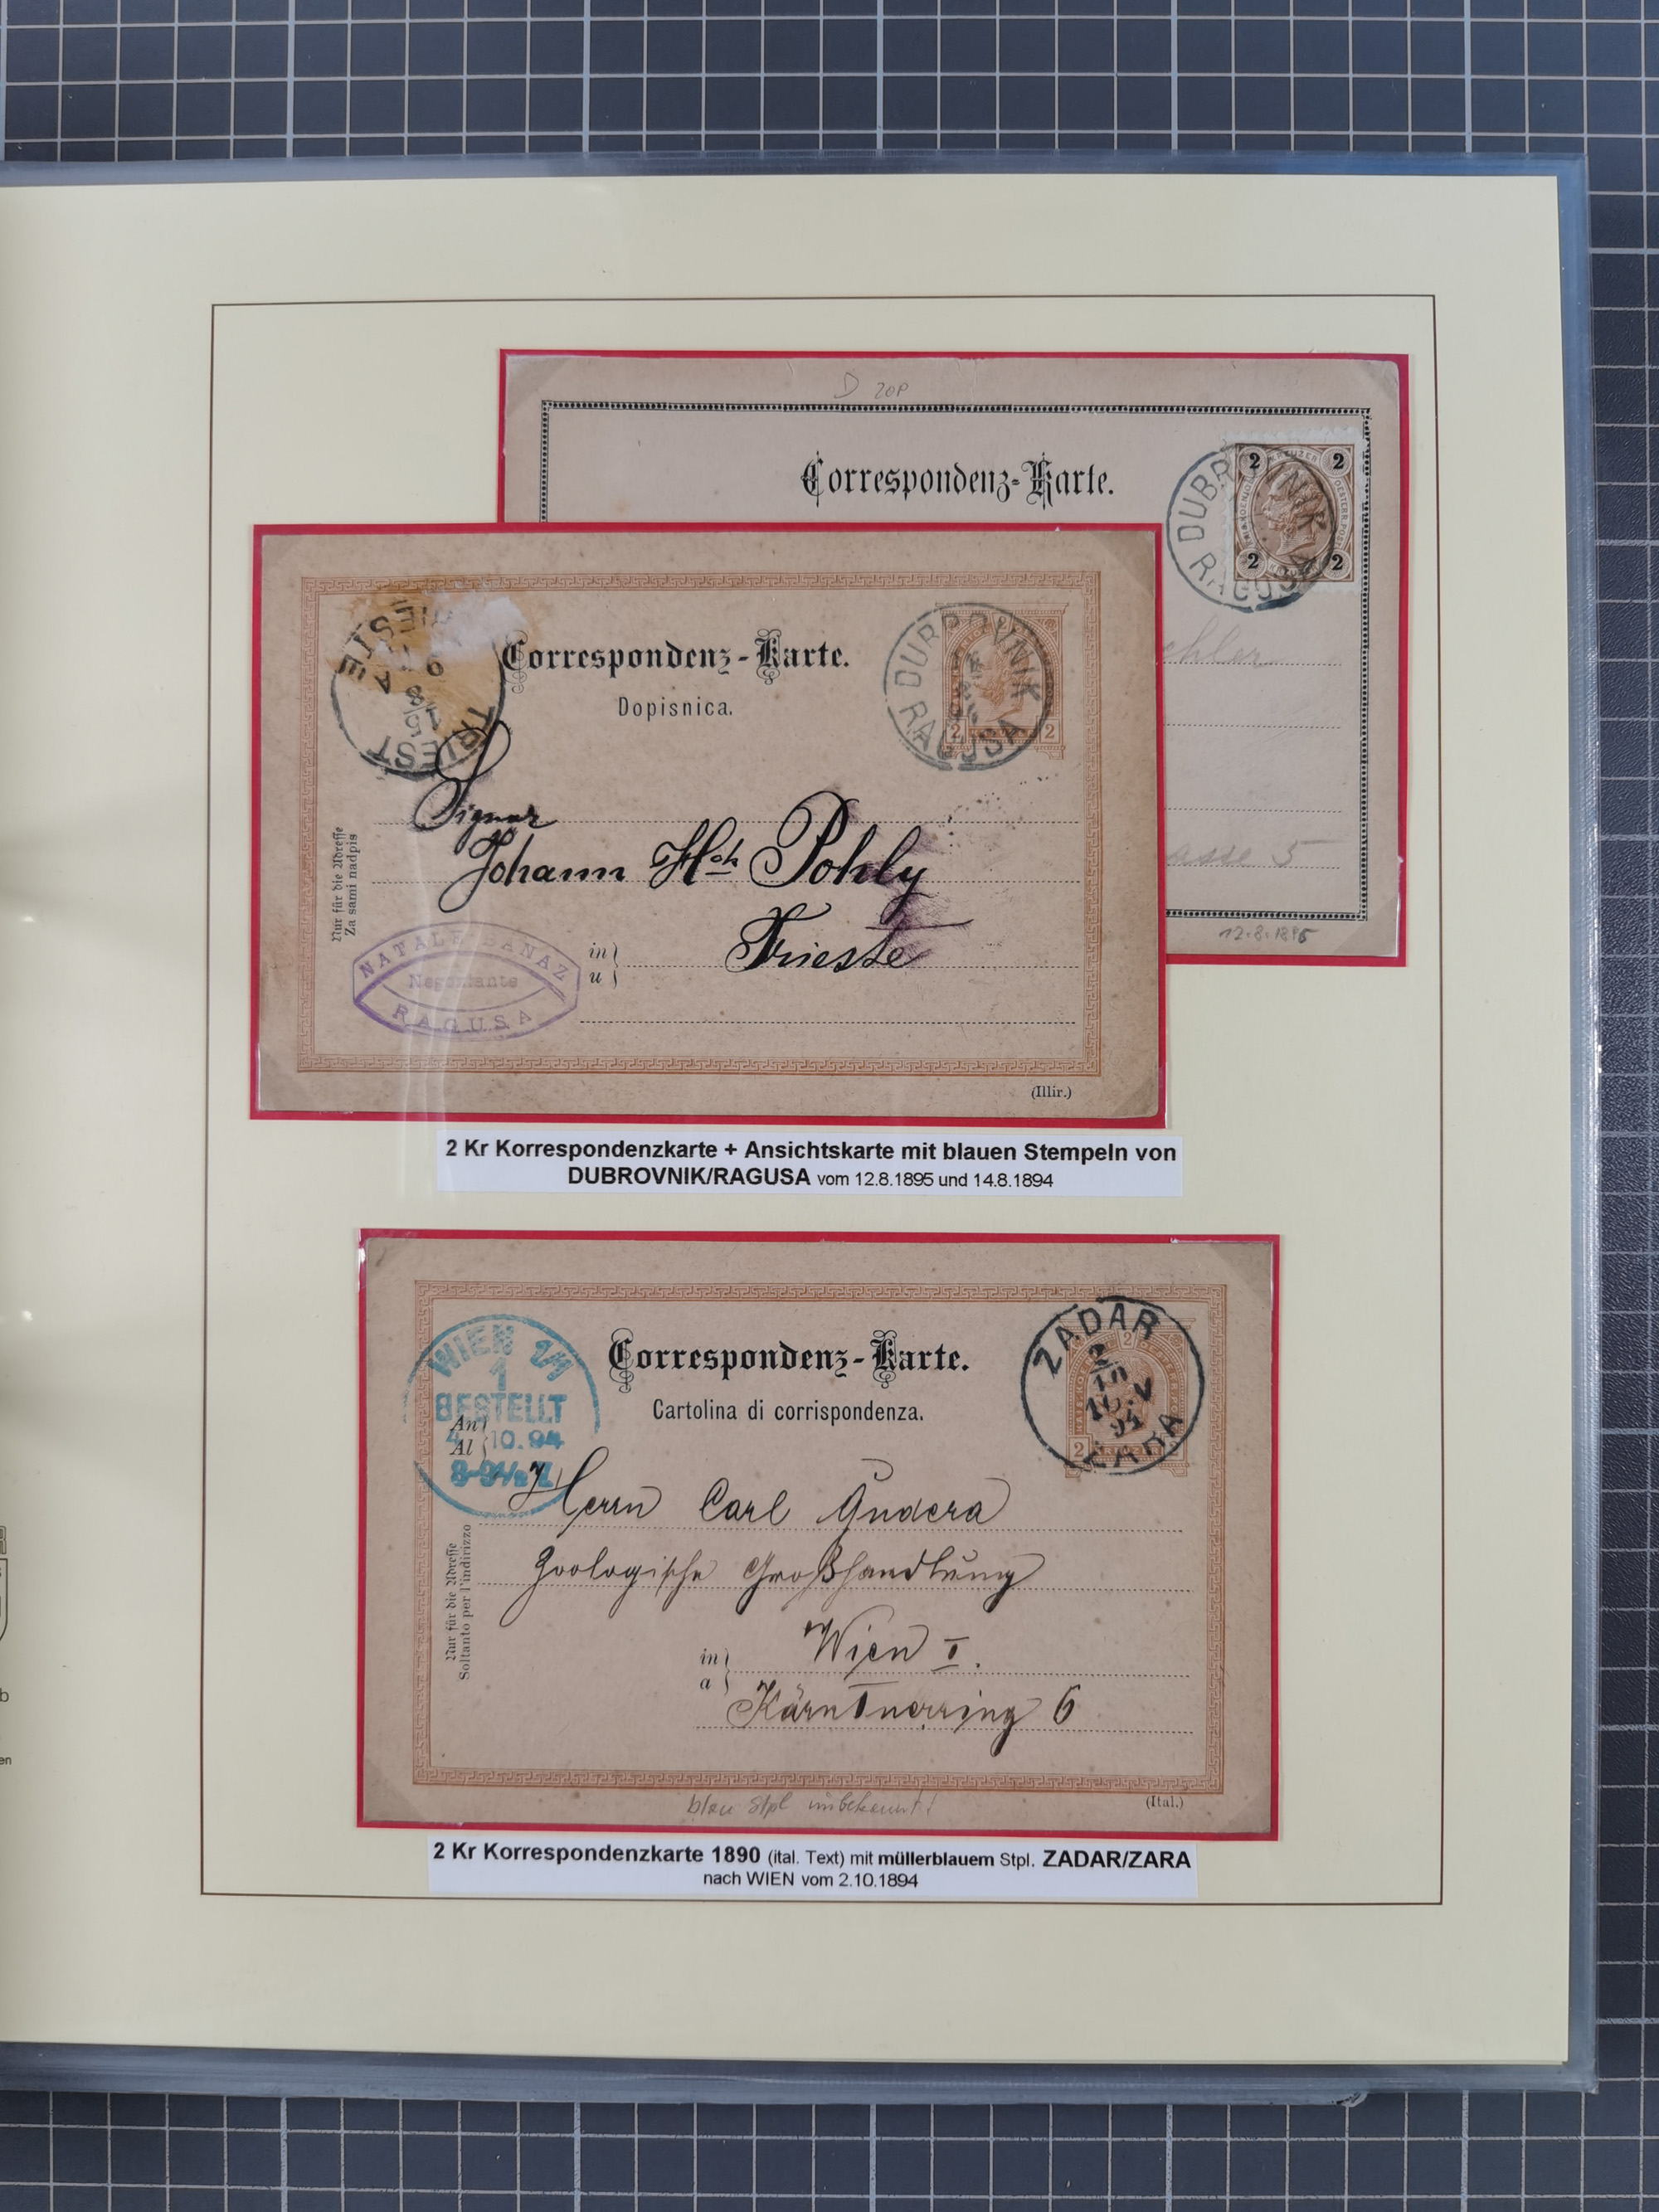 D 20P
Correspondenz-Karte.
2 KREUZER 2
2 2
DUBROVNIK
RAGUSA
chler
asse 5
12.8.1895
Correspondenz-Karte.
Dopisnica.
DUBROVNIK
RAGUSA
2 2
TRIESTE
TRIEST
15/8
Signor
Johann Hch Pohly
Trieste
Nur für die Adresse
Za sami nadpis
in
u
NATALE BANAZ
Negoziante
RAGUSA
(Illir.)
2 Kr Korrespondenzkarte + Ansichtskarte mit blauen Stempeln von
DUBROVNIK/RAGUSA vom 12.8.1895 und 14.8.1894
WIEN 1/1
1
BESTELLT
4.10.94
8-9½V
An
Al
Correspondenz-Karte.
Cartolina di corrispondenza.
ZADAR
2
10
10.V
94
ZARA
2 2 2
Herrn Carl Gudera
Zoologische Großhandlung
Wien I.
Kärntnerring 6
Nur für die Adresse
Soltanto per l'indirizzo
in
a
(Ital.)
blau Stpl unbekannt!
2 Kr Korrespondenzkarte 1890 (ital. Text) mit müllerblauem Stpl. ZADAR/ZARA
nach WIEN vom 2.10.1894
b
en